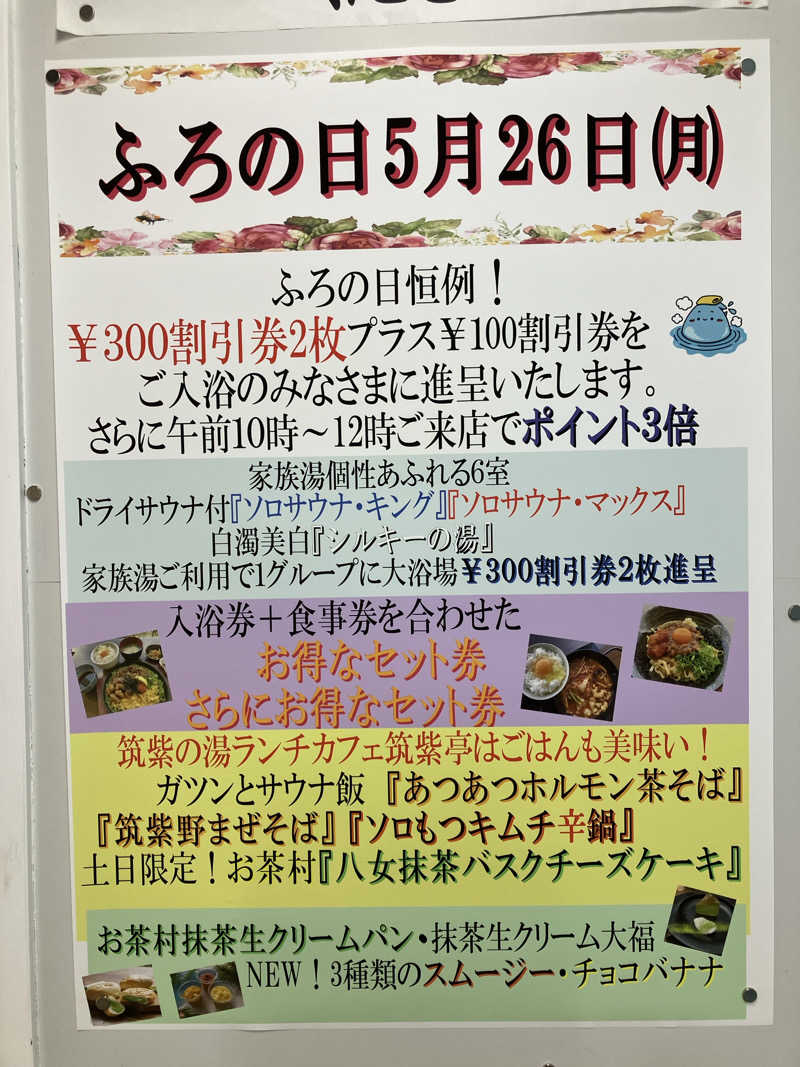 ふろの日5月26日(月)
ふろの日恒例！
￥300割引券2枚プラス￥100割引券を
ご入浴のみなさまに進呈いたします。
さらに午前10時～12時ご来店でポイント3倍
家族湯個性あふれる6室
ドライサウナ付『ソロサウナ・キング』『ソロサウナ・マックス』
白濁美白『シルキーの湯』
家族湯ご利用で1グループに大浴場￥300割引券2枚進呈
入浴券＋食事券を合わせた
お得なセット券
さらにお得なセット券
筑紫の湯ランチカフェ筑紫亭はごはんも美味い！
ガツンとサウナ飯 『あつあつホルモン茶そば』
『筑紫野まぜそば』『ソロもつキムチ辛鍋』
土日限定！お茶村『八女抹茶バスクチーズケーキ』
お茶村抹茶生クリームパン・抹茶生クリーム大福
NEW！3種類のスムージー・チョコバナナ